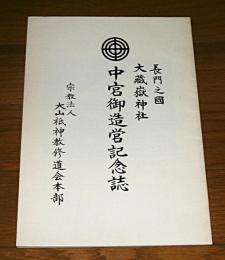 長門之國
大藏嶽神社
中宮御造営記念誌
宗教法人
大山祗神教修道会本部